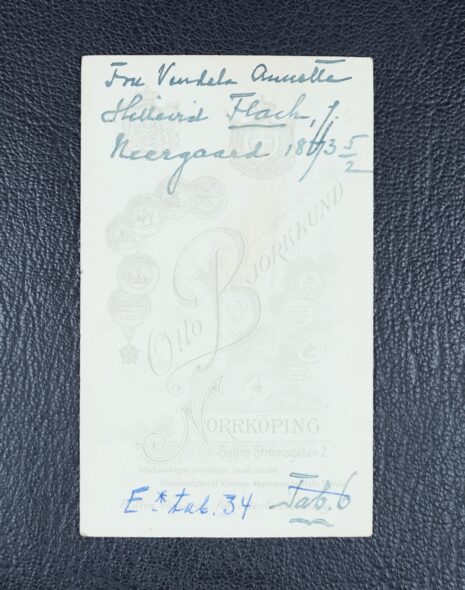 Fru Vendela Annette
Hillevid Flach, f.
Neergaard 18 3 5/2
Otto Björklund
NORRKÖPING
Södra Strömsgatan 2
E * tab. 34 Tab. 6